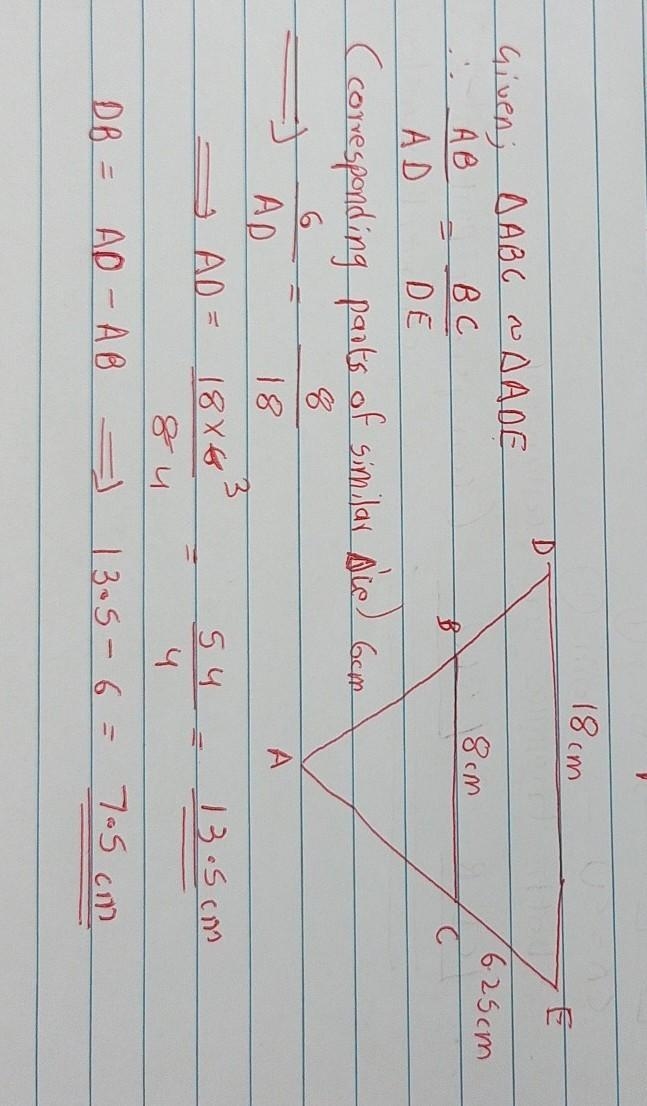 Given, ΔABC ~ ΔADE
∴ AB/AD = BC/DE
(corresponding parts of similar Δle)
⟹ 6/AD = 8/18
⟹ AD = 18×6 3/8 4 = 54/4 = 13.5 cm
DB = AD - AB ⟹ 13.5 - 6 = 7.5 cm
D
18 cm
E
B
8 cm
C
6.25 cm
6cm
A